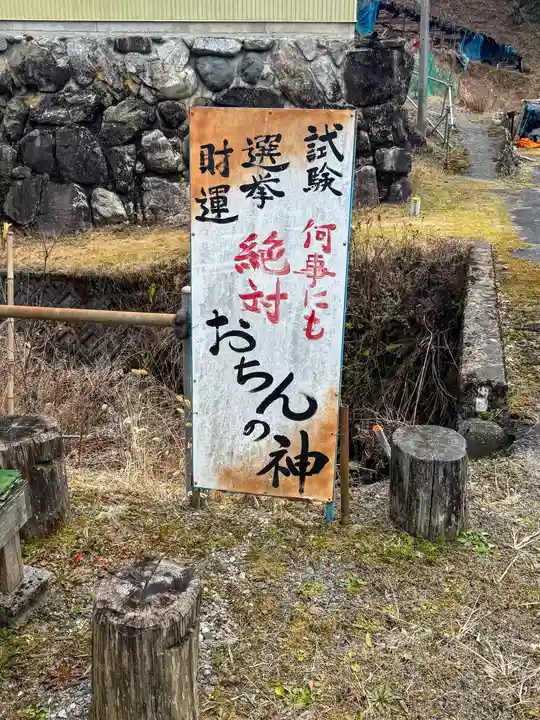 試験
選挙
財運
何事にも
絶対
おちんの神